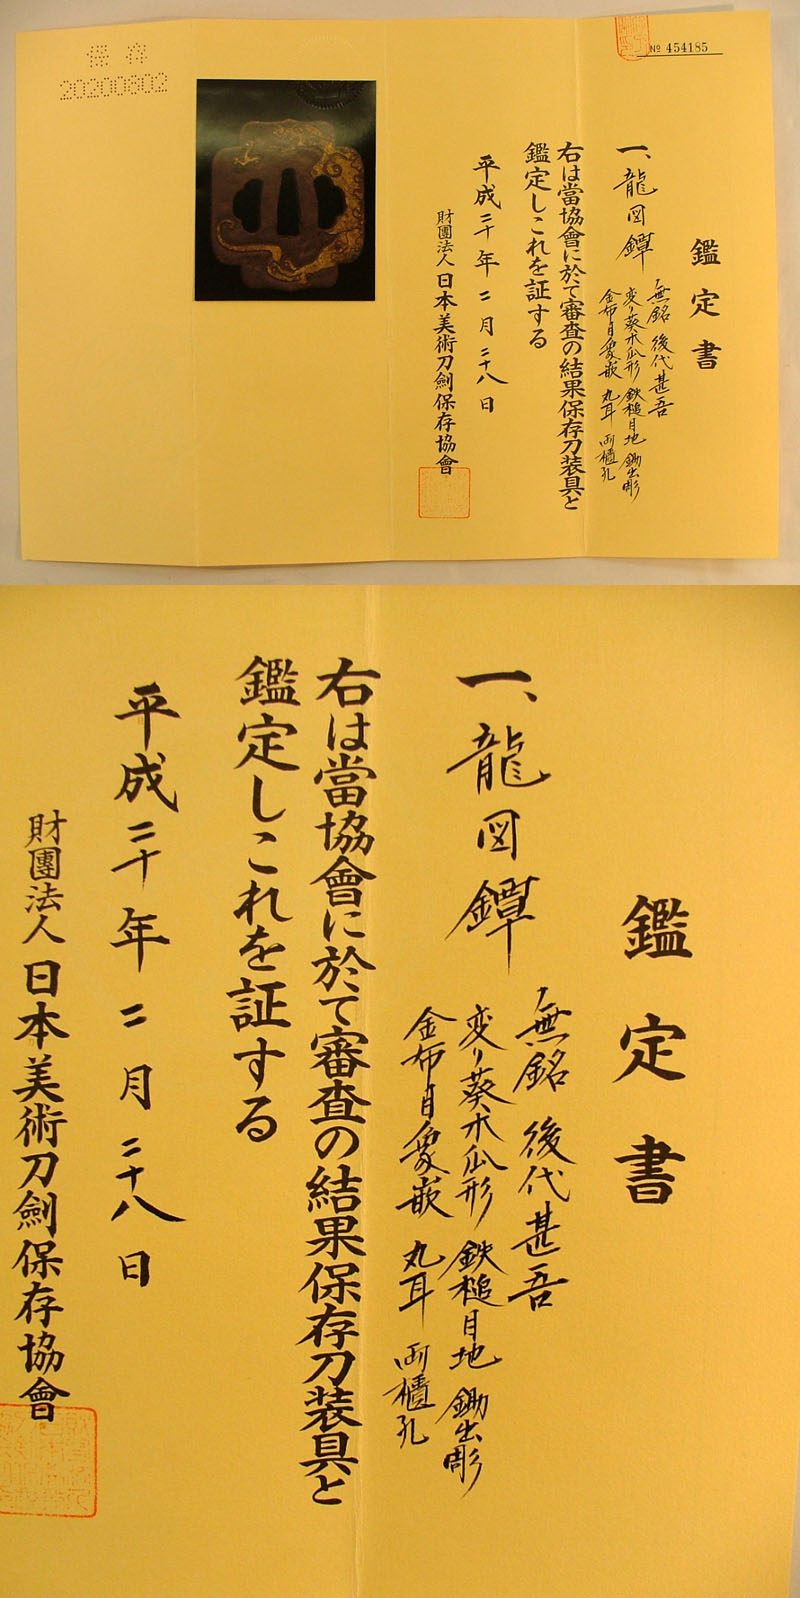 保存
20200802
№ 454185
鑑定書
一、龍図鐔
無銘 後代甚吾
変り葵木瓜形 鉄槌目地 鋤出彫
金布目象嵌 丸耳 両櫃孔
右は當協會に於て審査の結果保存刀装具と
鑑定しこれを証する
平成二十年二月二十八日
財團法人日本美術刀劍保存協會
鑑定書
一、龍図鐔
無銘 後代甚吾
変り葵木瓜形 鉄槌目地 鋤出彫
金布目象嵌 丸耳 両櫃孔
右は當協會に於て審査の結果保存刀装具と
鑑定しこれを証する
平成二十年二月二十八日
財團法人日本美術刀劍保存協會